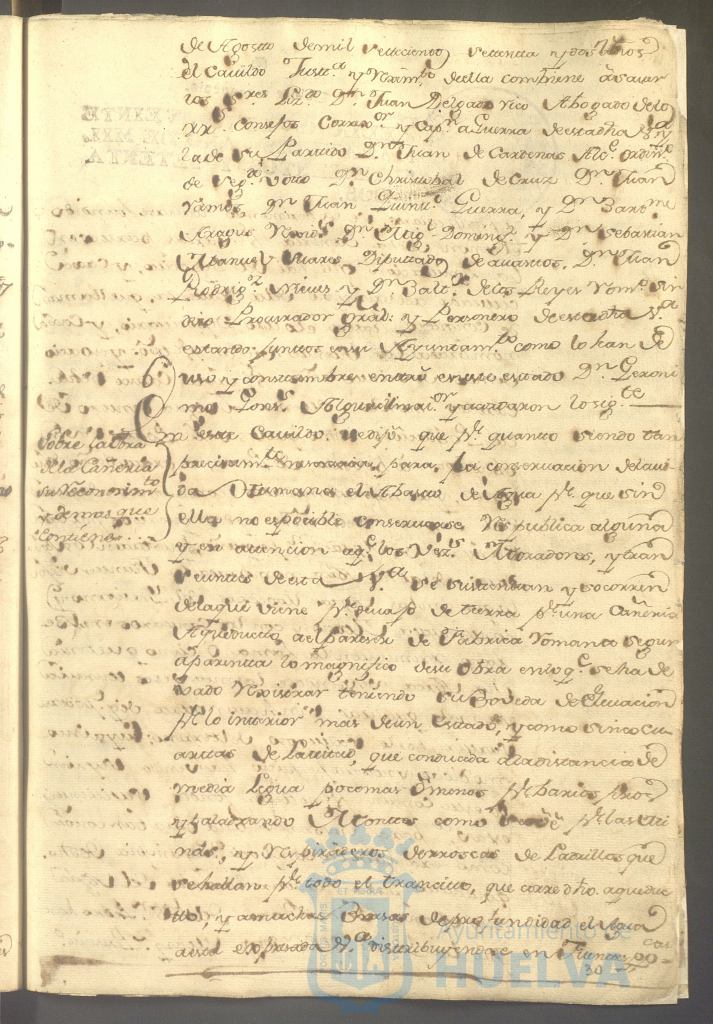 de Agosto de mil setecientos setenta y dos años
el Cavildo Justt.ª y Reximt.º de ella combiene a saver
los S.res Liz.do D.n Juan Delgado rico Abogado de los
RR. Consejos Correx.or y Cap.n a Guerra de esta dha V.ª y
la de su Partido D.n Juan de Cardenas Alc.e ordin.º
de seg.do voto D.n Christobal de Cruz D.n Juan
Ramos, D.n Juan Quint.º Guerra, y D.n Bart.me
D.n Mig.l Doming.z y D.n Sebastian
Suares Diputtados de avastos, D.n Juan
Rodrig.z y D.n Balt.r de los Reyes Sin
dico Procurador gral. y Personero de esta dha V.ª
estando juntos en su Ayuntam.to como lo han de
uso y constumbre entró en este estado D.n Geroni
mo Alguacil mai.or y acordaron lo sig.te
Sobre la obra
de la Cañeria
su Reconocim.to
y demas que
contiene
En este Cavildo se dijo que p.r quanto siendo tan
precisam.te nesesaria, para la conservacion de la vi
da Umana el Abasto de Agua p.r que sin
ella no es posible conservarse Rp.publica alguna
y en atencion a q.e los Vez.s Moradores, y tran
seuntes de esta V.ª se surten y socorren
de la que viene p.r devajo de tierra p.r una Cañeria
Aqueducto, al pareser de Fabrica Romana segun
aparenta lo magnifico de su obra en lo q.e se ha de
vado Rexistrar teniendo su Boveda de Elevacion
p.r lo interior mas de un estado, y como sinco cu
artas de Latitud, que conducida a la distancia de
media legua poco mas o menos p.r barios sitios
y taladrando Montes como se ve p.r las
mas, y Respiraderos de rroscas de Ladrillos que
se hallan p.r todo el transito, que corre dho. aqueduc
to, y a muchas Brasas de profundidad el Agua
a esta expresada V.ª distribuyendose en Fuentes
Ayuntamiento de
HUELVA